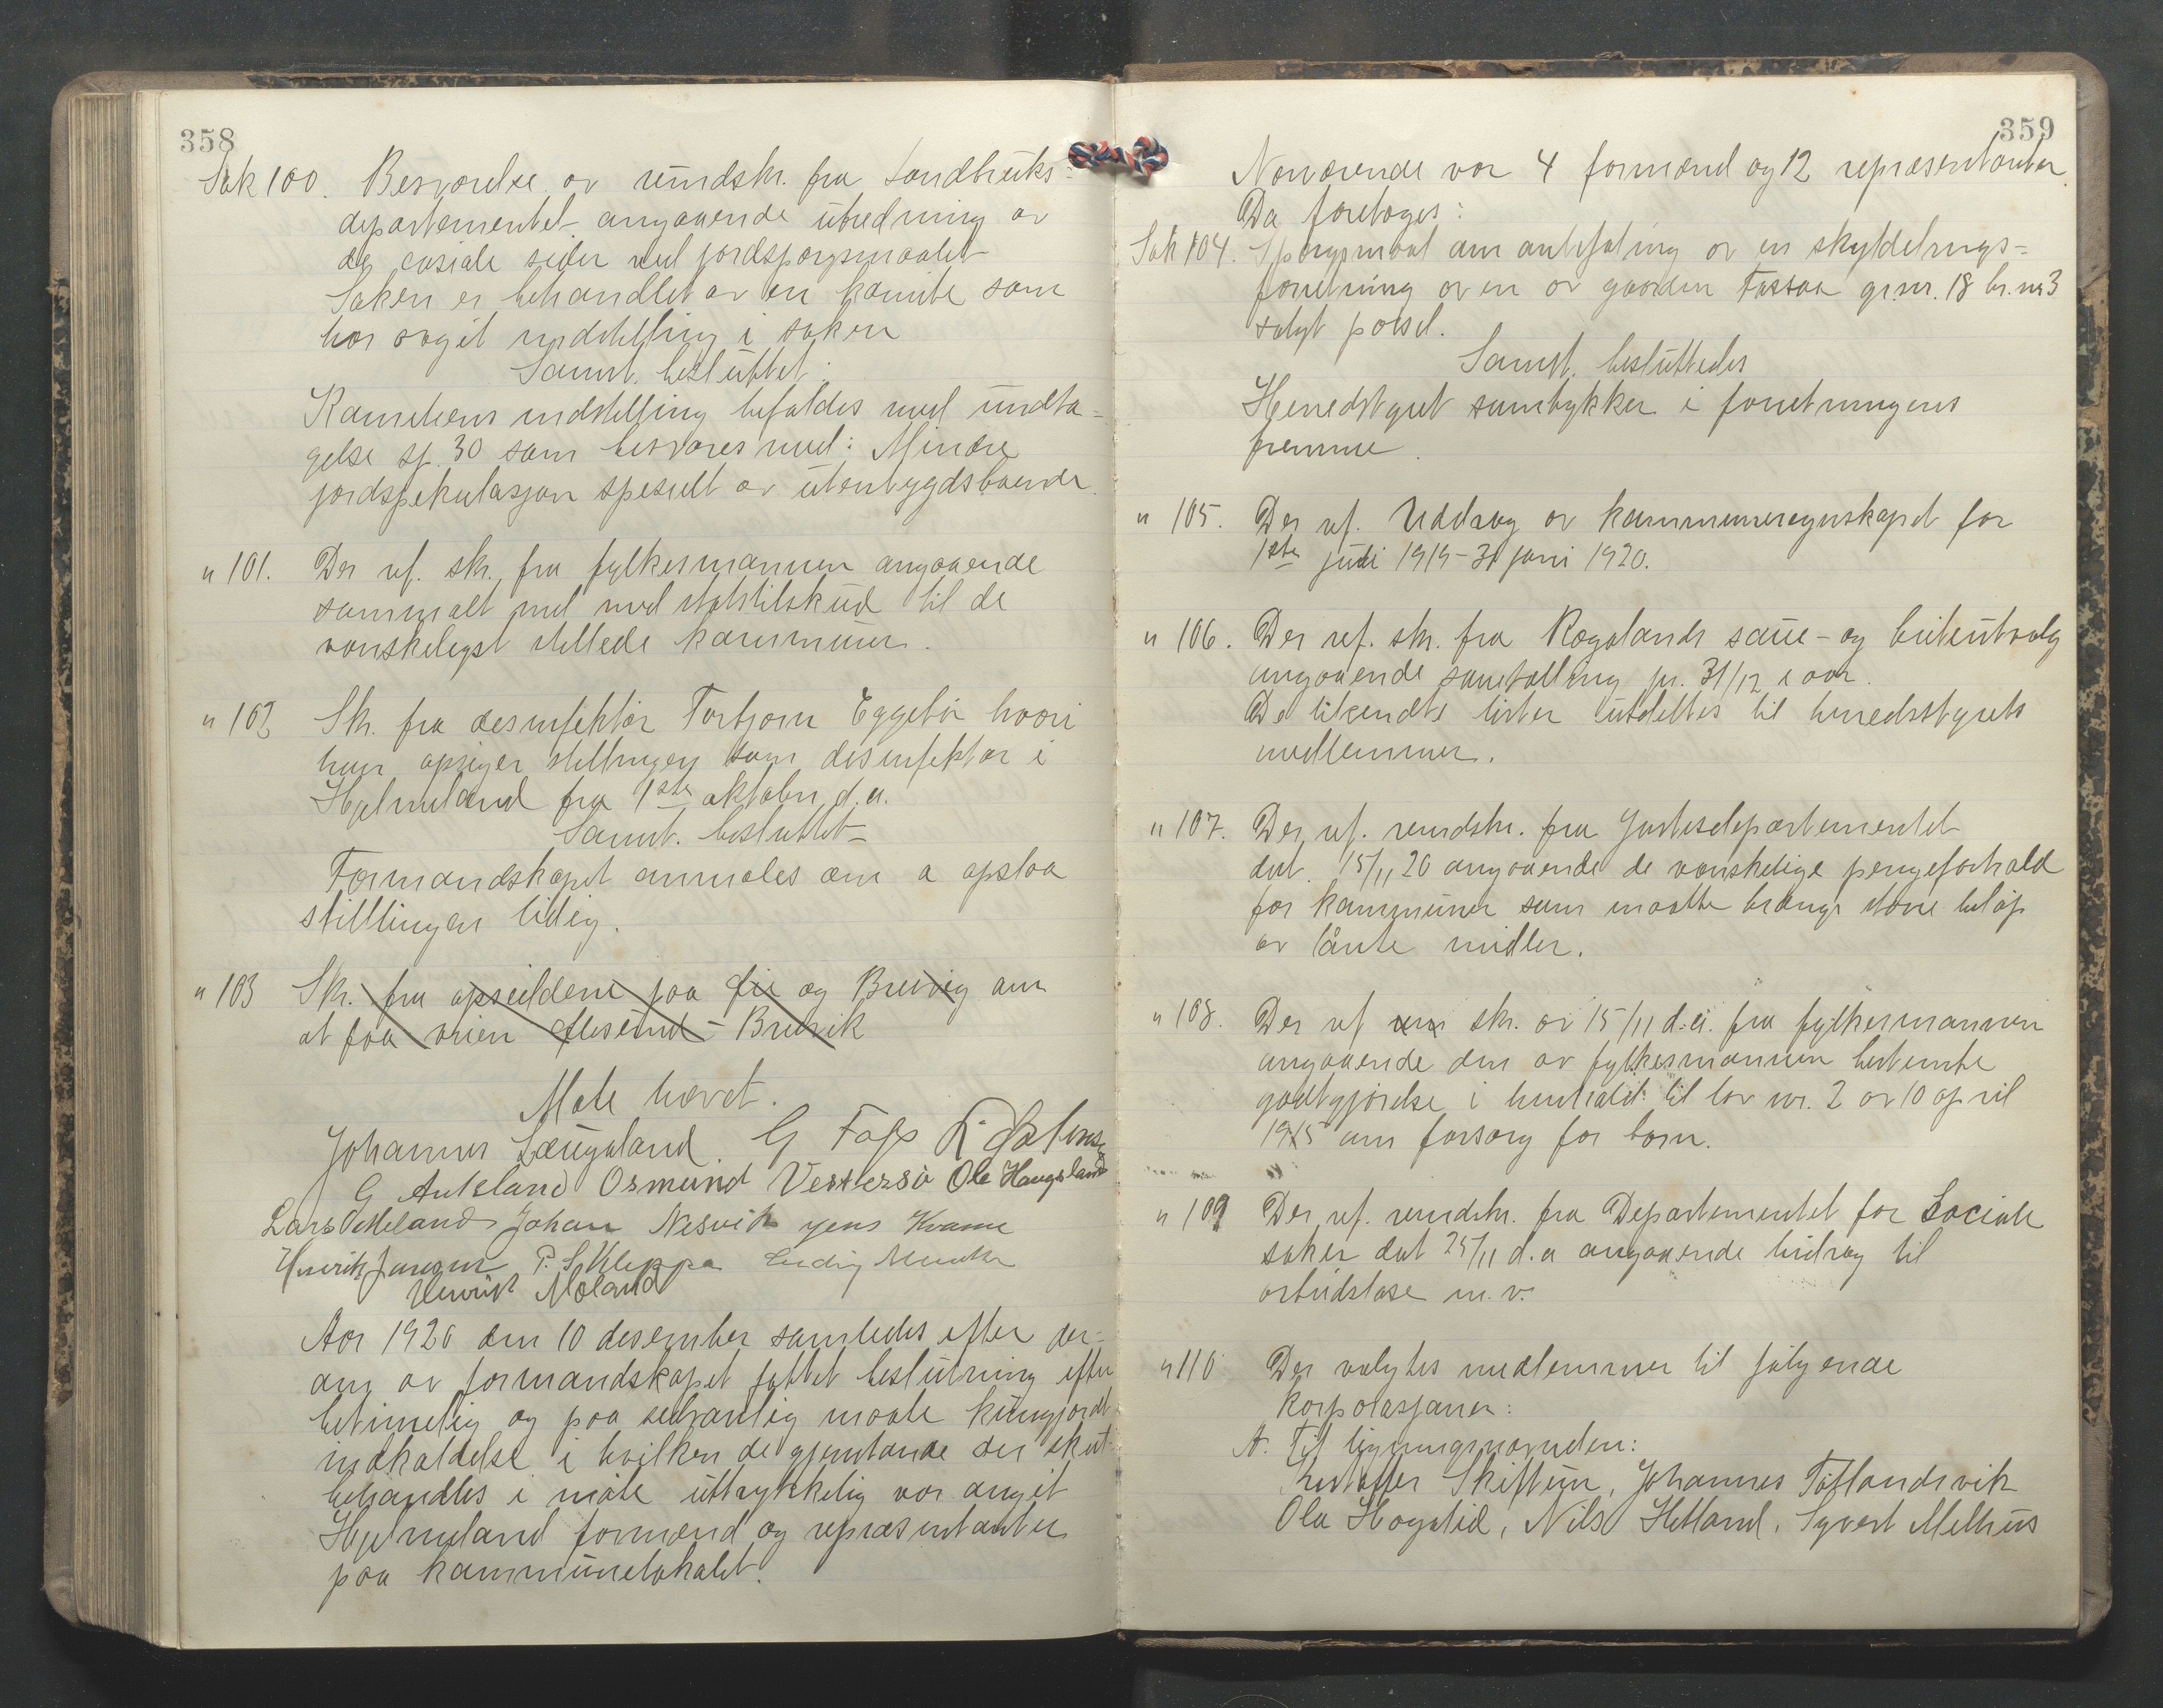 358
Sak 100. Besvarelse av rundskr. fra Landbruks-
departementet angaaende utredning av
de sosiale sider ved jordspørgsmaalet
Saken er behandlet av en komite som
har avgit indstilling i saken
Samt. besluttet:
Komiteens indstilling befaldes med undta-
gelse sp. 30 som besvares med: Mindre
jordspekulasjon spesielt av utenbygdsboende.
" 101. Der ref. skr. fra fylkesmannen angaaende
statstilskud til de
vanskeligst stillede kommuner.
" 102 Skr. fra desinfektør Torbjørn Eggebø hvori
han opsiger stillingen som desinfektør i
Hjelmeland fra 1ste oktober d.a.
Samt. besluttet
Formandskapet anmodes om a opslaa
stillingen ledig.
" 103 Skr. fra opsidderne paa og Brevig om
at faa veien - Brevik
Møte hævet.
Johannes Laugaland. G Fafs
G Auklana Osmund Vestersø Ole Haugsland
Lars Meland Johan Nesvik Jens Kvame
Henrik P. S. Kleppa
Henrik Meland
Aar 1920 den 10 desember samledes efter der-
om av formandskapet fattet beslutning efter
betimelig og paa sedvanlig maate kungjordt
indkaldelse i hvilken de gjenstande der skul
behandles i møte uttrykkelig var angit
Hjelmeland formænd og representanter
paa kommunelokalet.
359
Nærværende var 4 formænd og 12 repræsentanter.
Da foretoges:
Sak 104. Spørgsmaal om anbefaling av en skyldelings-
forretning over en av gaarden Tassaa gr.nr. 18 br.nr 3
solgt parsel.
Samt. besluttedes
Herredstyret samtykker i forretningens
fremme.
" 105. Der ref. Uddrag av kommuneregnskapet for
1ste juli 1919 - 31 juni 1920.
" 106. Der ref. skr. fra Rogalands saue- og beiteutvalg
angaaende sauetælling pr. 31/12 i aar.
De tilsendte lister utdeltes til herredsstyrets
medlemmer.
" 107. Der ref. rundskr. fra Justisdepartementet
dat. 15/11 20 angaaende de vanskelige pengeforhold
for kommuner som maatte trænge større beløp
av lånte midler.
" 108. Der ref skr. av 15/11 d.a. fra fylkesmannen
angaaende den av fylkesmannen bestemte
godtgjørelse i henhold til lov nr. 2 av 10 april
1915 om forsorg for børn.
" 109 Der ref. rundskr. fra Departementet for Sociale
saker dat 25/11 d.a angaaende bidrag til
arbeidsløse m.v.
" 110 Der valgtes medlemmer til følgende
korporasjoner:
A. Til ligningsnævnden:
Kristoffer Skiftun, Johannes Tøtlandsvik
Ola Høgalid, Nils Hetland, Syvert Melhus